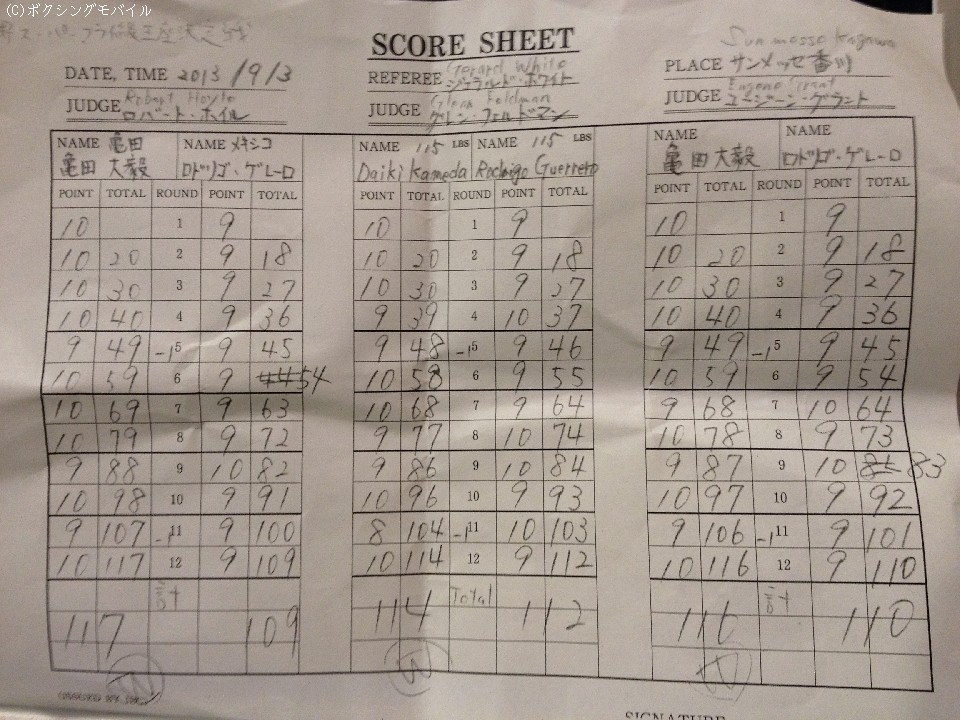 (C)ボクシングモバイル
SCORE SHEET
Sun messe Kagawa
DATE, TIME 2013/9/3
REFEREE Gerard White ジェラルド・ホワイト
PLACE サンメッセ香川
JUDGE Robert Hoyle ロバート・ホイル
JUDGE Glenn Feldman グレン・フェルドマン
JUDGE Eugene Grant ユージーン・グラント
NAME 亀田 亀田 大毅 NAME メキシコ ロドリゴ・ゲレーロ
POINT TOTAL ROUND POINT TOTAL
10 1 9
10 20 2 9 18
10 30 3 9 27
10 40 4 9 36
9 49 -1 5 9 45
10 59 6 9 44 54
10 69 7 9 63
10 79 8 9 72
9 88 9 10 82
10 98 10 9 91
9 107 -1 11 9 100
10 117 12 9 109
計
117 109
NAME 115 LBS Daiki Kameda NAME 115 LBS Rodrigo Guerrero
POINT TOTAL ROUND POINT TOTAL
10 1 9
10 20 2 9 18
10 30 3 9 27
9 39 4 10 37
9 48 -1 5 9 46
10 58 6 9 55
10 68 7 9 64
9 77 8 10 74
9 86 9 10 84
10 96 10 9 93
8 104 -1 11 10 103
10 114 12 9 112
Total
114 112
NAME 亀田 大毅 NAME ロドリゴ・ゲレーロ
POINT TOTAL ROUND POINT TOTAL
10 1 9
10 20 2 9 18
10 30 3 9 27
10 40 4 9 36
9 49 -1 5 9 45
10 59 6 9 54
9 68 7 10 64
10 78 8 9 73
9 87 9 10 83
10 97 10 9 92
9 106 -1 11 9 101
10 116 12 9 110
計
116 110
SIGNATURE